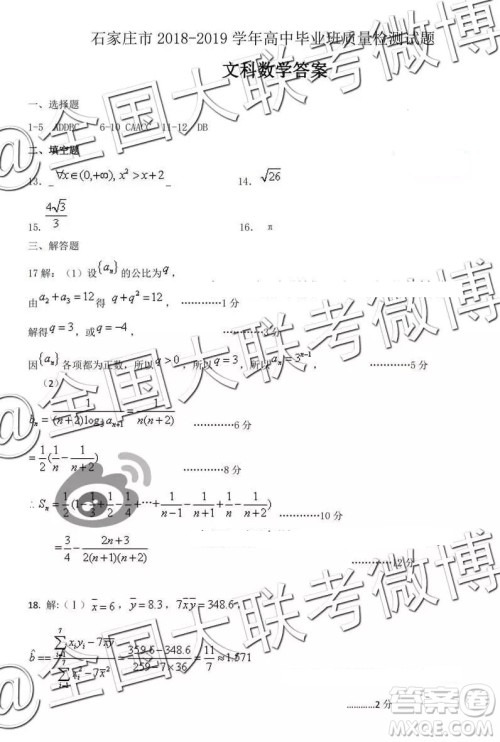 石家庄市 2018-2019 学年高中毕业班质量检测试题
文科数学答案
一、选择题
1-5 ADDBC 6-10 CAACC 11-12 DB
二、填空题
13. ∀x∈(0,+∞), x²>x+2 14. √26
15. 4√3/3 16. π
三、解答题
17 解：（1）设{aₙ}的公比为 q，
由 a₂+a₃=12 得 q+q²=12， …………1 分
解得 q=3，或 q=-4，
因{aₙ}各项都为正数，所以 q>0，所以 q=3，所以 aₙ=3ⁿ⁻¹ …………5 分
（2）
bₙ = 1/((n+2)log₃aₙ₊₁) = 1/(n(n+2)) …………6 分
= 1/2(1/n - 1/(n+2)) …………8 分
∴ Sₙ = 1/2(1 - 1/3 + 1/2 - 1/4 +…+ 1/(n-1) - 1/(n+1) + 1/n - 1/(n+2)) …………10 分
= 3/4 - (2n+3)/(2(n+1)(n+2)) …………12 分
18. 解：（Ⅰ）x̄=6，ȳ=8.3，7x̄ȳ=348.6，
b̂ = (∑xᵢyᵢ - 7x̄ȳ)/(∑xᵢ² - 7x̄²) = (359.6-348.6)/(259-7×36) = 11/7 ≈ 1.571
…………2 分
@全国大联考微博
@全国大联考微博
@全国大联考微博